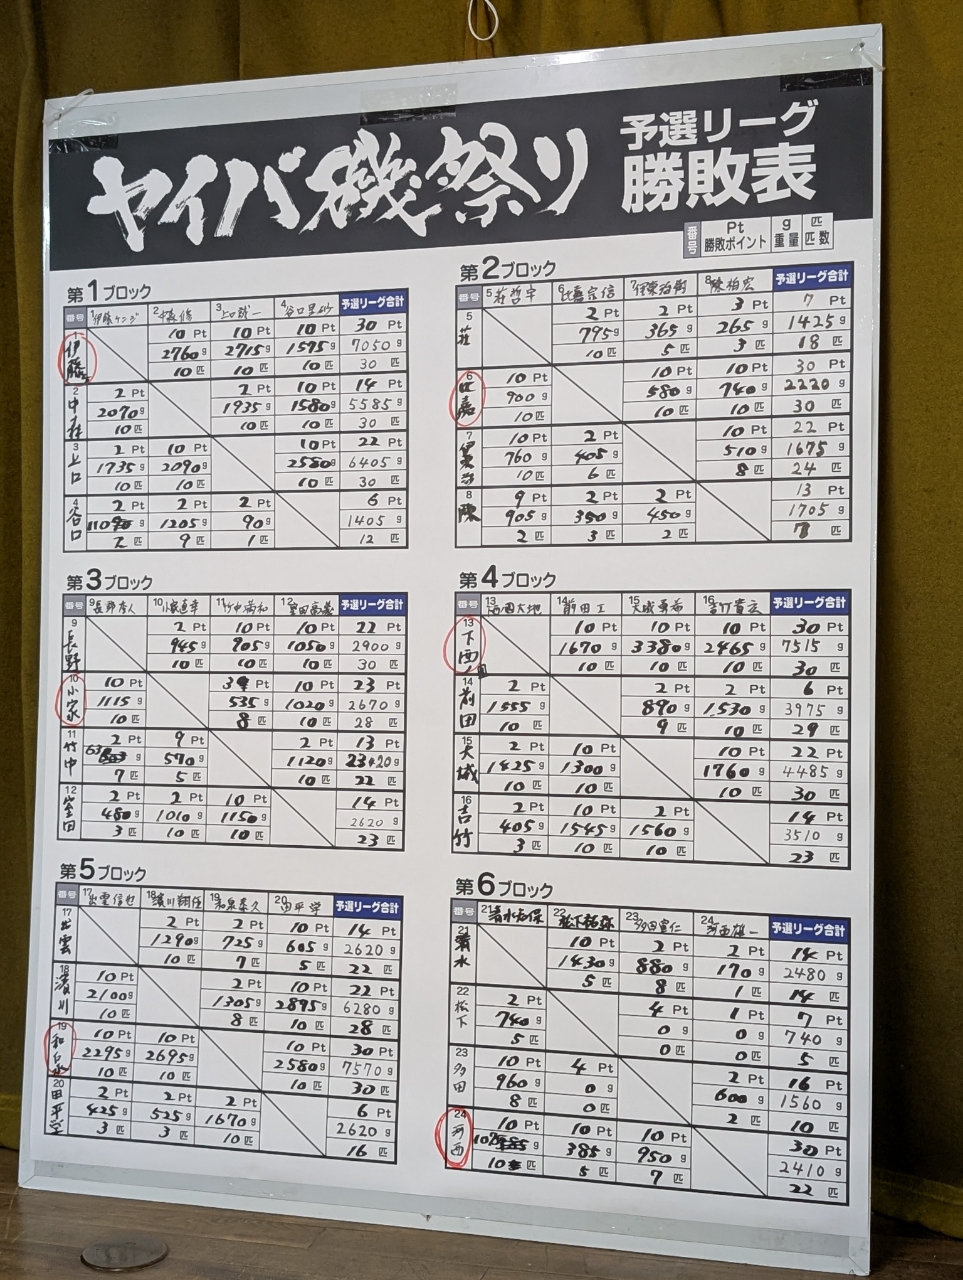 ヤイバ磯祭り 予選リーグ
勝敗表
番号 Pt 勝敗ポイント g 重量 匹 匹数
第1ブロック
番号 1 伊藤ケンジ 2 中森修 3 上口誠一 4 予選リーグ合計
伊藤 10 Pt 10 Pt 10 Pt 30 Pt
2760 g 2715 g 1575 g 7050 g
10 匹 10 匹 10 匹 30 匹
2 中森 2 Pt 2 Pt 10 Pt 14 Pt
2070 g 1935 g 1580 g 5585 g
10 匹 10 匹 10 匹 30 匹
3 上口 2 Pt 10 Pt 10 Pt 22 Pt
1735 g 2090 g 2580 g 6405 g
10 匹 10 匹 10 匹 30 匹
4 谷口 2 Pt 2 Pt 2 Pt 6 Pt
g 1205 g 90 g 1405 g
2 匹 9 匹 1 匹 12 匹
第2ブロック
番号 5 荘哲宇 6 比嘉宗信 7 伊東 8 陳柏宏 予選リーグ合計
5 荘 2 Pt 2 Pt 3 Pt 7 Pt
795 g 365 g 265 g 1425 g
10 匹 5 匹 3 匹 18 匹
6 比嘉 10 Pt 10 Pt 10 Pt 30 Pt
900 g 580 g 740 g 2220 g
10 匹 10 匹 10 匹 30 匹
7 10 Pt 2 Pt 10 Pt 22 Pt
760 g 405 g 510 g 1675 g
10 匹 6 匹 8 匹 24 匹
8 陳 9 Pt 2 Pt 2 Pt 13 Pt
905 g 350 g 450 g 1705 g
2 匹 3 匹 2 匹 7 匹
第3ブロック
番号 9 長野 10 小家直幸 11 竹中満和 12 予選リーグ合計
9 長野 2 Pt 10 Pt 10 Pt 22 Pt
945 g 905 g 1050 g 2900 g
10 匹 10 匹 10 匹 30 匹
10 小家 10 Pt 3 Pt 10 Pt 23 Pt
1115 g 535 g 1020 g 2670 g
10 匹 8 匹 10 匹 28 匹
11 竹中 2 Pt 9 Pt 2 Pt 13 Pt
g 590 g 1120 g g
7 匹 5 匹 10 匹 22 匹
12 2 Pt 2 Pt 10 Pt 14 Pt
480 g 1010 g 1150 g 2620 g
3 匹 10 匹 10 匹 23 匹
第4ブロック
番号 13 大地 14 前田 15 大城 16 吉竹貴 予選リーグ合計
13 下西 10 Pt 10 Pt 10 Pt 30 Pt
1670 g 3380 g 2465 g 7515 g
10 匹 10 匹 10 匹 30 匹
14 前田 2 Pt 2 Pt 2 Pt 6 Pt
1555 g 890 g 1530 g 3975 g
10 匹 9 匹 10 匹 29 匹
15 大城 2 Pt 10 Pt 10 Pt 22 Pt
1425 g 1300 g 1760 g 4485 g
10 匹 10 匹 10 匹 30 匹
16 吉竹 2 Pt 10 Pt 2 Pt 14 Pt
405 g 1545 g 1560 g 3510 g
3 匹 10 匹 10 匹 23 匹
第5ブロック
番号 17 出雲信也 18 濱川翔伍 19 和泉泰久 20 田平学 予選リーグ合計
17 出雲 2 Pt 2 Pt 10 Pt 14 Pt
1290 g 725 g 605 g 2620 g
10 匹 7 匹 5 匹 22 匹
18 濱川 10 Pt 2 Pt 10 Pt 22 Pt
2100 g 1305 g 2895 g 6280 g
10 匹 8 匹 10 匹 28 匹
19 和泉 10 Pt 10 Pt 10 Pt 30 Pt
2295 g 2695 g 2580 g 7570 g
10 匹 10 匹 10 匹 30 匹
20 田平 2 Pt 2 Pt 2 Pt 6 Pt
425 g 525 g 1670 g 2620 g
3 匹 3 匹 10 匹 16 匹
第6ブロック
番号 21 清水 22 松下 23 多田 24 河西雄一 予選リーグ合計
21 清水 10 Pt 2 Pt 2 Pt 14 Pt
1430 g 880 g 170 g 2480 g
5 匹 8 匹 1 匹 14 匹
22 松下 2 Pt 4 Pt 1 Pt 7 Pt
740 g 0 g 0 g 740 g
5 匹 0 匹 0 匹 5 匹
23 多田 10 Pt 4 Pt 2 Pt 16 Pt
960 g 0 g 600 g 1560 g
8 匹 0 匹 2 匹 10 匹
24 河西 10 Pt 10 Pt 10 Pt 30 Pt
g 385 g 950 g 2410 g
10 匹 5 匹 7 匹 22 匹